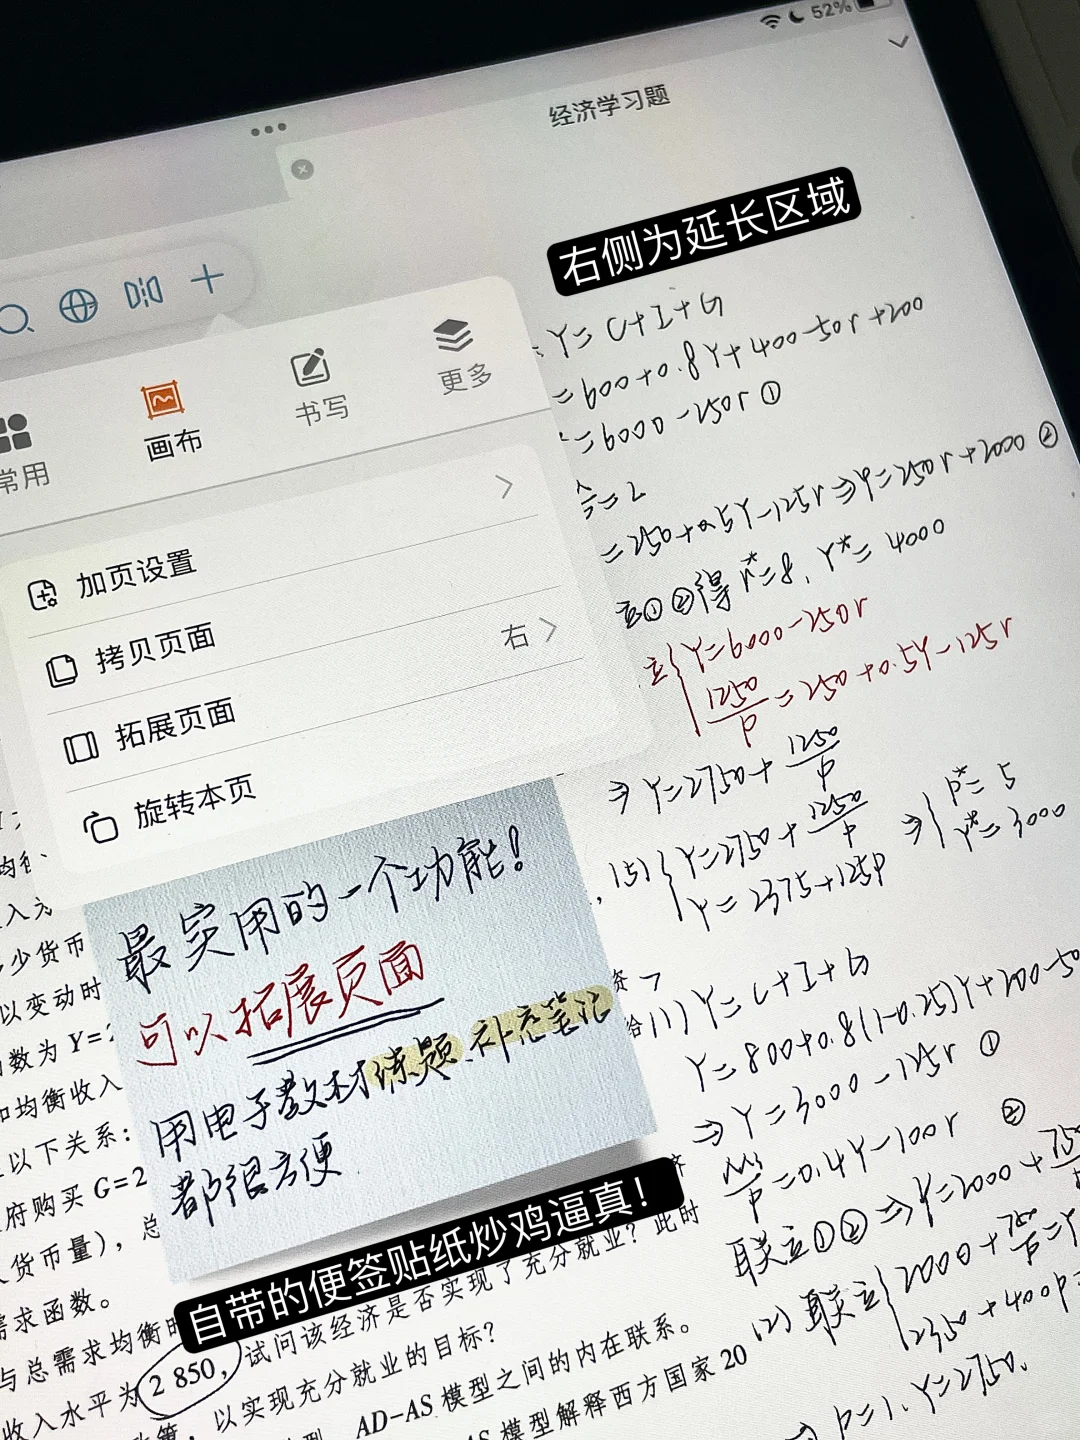 52%
经济学习题
右侧为延长区域
常用
画布
书写
更多
加页设置
拷贝页面
右
拓展页面
旋转本页
最实用的一个功能！
可以拓展页面
用电子教材练题、补充笔记
都很方便
自带的便签贴纸炒鸡逼真！
Y=C+I+G
=600+0.8Y+400-50r+200
=6000-250r ①
令=L
=250+0.5Y-125r⇒Y=250r+2000 ②
立①②得 r*=8, Y*=4000
立{Y=6000-250r
1250/P=250+0.5Y-125r
⇒Y=2750+1250/P
(5){Y=2750+1250/P
Y=2375+125P
⇒{P*=5
Y*=3000
(1) Y=C+I+G
Y=800+0.8(1-0.25)Y+200-50
⇒Y=3000-125r ①
=0.4Y-100r ②
联立①②⇒Y=2000+750
(2) 联立{2000+750/P=Y
2350+400P=
⇒P=1, Y=2750.
入为
少货币
以变动时
数为 Y=2
和均衡收入
以下关系：
府购买 G=2
货币量），总
需求函数。
与总需求均衡时
收入水平为 2 850，试问该经济是否实现了充分就业？此时
以实现充分就业的目标？
AD-AS 模型之间的内在联系。
AS 模型解释西方国家 20